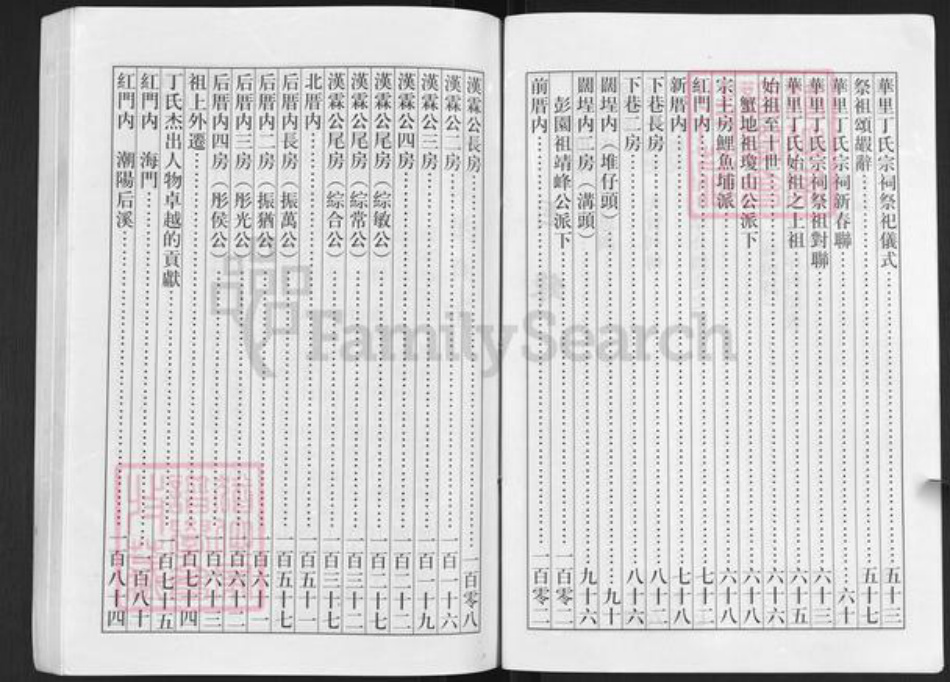 華里丁氏宗祠祭祀儀式……五十三
祭祖頌嘏辭……五十七
華里丁氏宗祠新春聯……六十
華里丁氏宗祠祭祖對聯……六十三
華里丁氏始祖之上祖……六十五
始祖至十世……六十六
蟹地祖瓊山公派下……六十八
宗主房鯉魚埔派……六十八
紅門內……七十二
新厝內……七十八
下巷長房……八十二
下巷二房……八十六
闊埕內（堆仔頭）……九十
闊埕內二房（溝頭）……九十六
彭園祖靖峰公派下……一百零二
前厝內……一百零二
漢霖公長房……一百零八
漢霖公二房……一百一十六
漢霖公三房……一百一十九
漢霖公四房……一百二十二
漢霖公尾房（綜敏公）……一百二十七
漢霖公尾房（綜常公）……一百三十二
漢霖公尾房（綜合公）……一百三十七
北厝內……一百五十一
后厝內長房（振萬公）……一百五十七
后厝內二房（振猶公）……一百六十一
后厝內三房（彤光公）……一百六十二
后厝內四房（彤侯公）……一百六十三
祖上外遷……一百七十四
丁氏杰出人物卓越的貢獻……一百七十五
紅門內 海門……一百八十
紅門內 潮陽后溪……一百八十四
FamilySearch